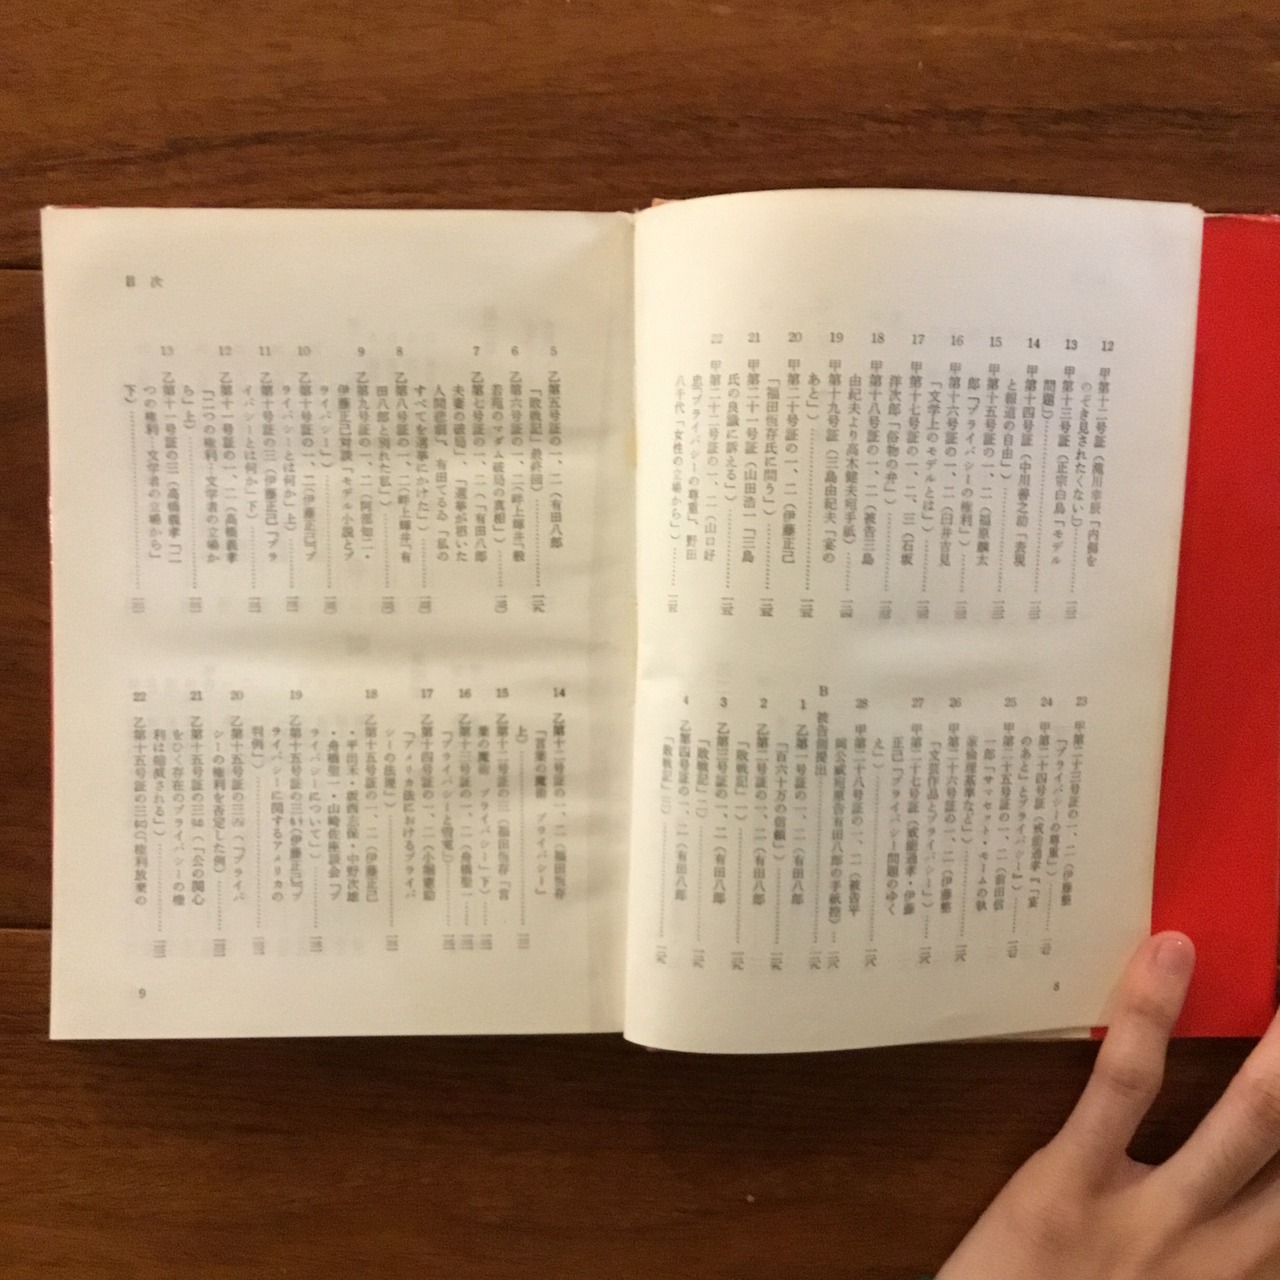 12 甲第十二号証(滝川幸辰「内側を
のぞき見されたくない」)
13 甲第十三号証(正宗白鳥「モデル
問題」)
14 甲第十四号証(中川善之助「表現
と報道の自由」)
15 甲第十五号証の一、二(福原麟太
郎「プライバシーの権利」)
16 甲第十六号証の一、二(臼井吉見
「文学上のモデルとは」)
17 甲第十七号証の一、二、三(石坂
洋次郎「俗物の弁」)
18 甲第十八号証の一、二(被告三島
由紀夫より高木健夫宛手紙)
19 甲第十九号証(三島由紀夫「宴の
あと」)
20 甲第二十号証の一、二(伊藤正己
「福田恆存氏に問う」)
21 甲第二十一号証(山田浩一「三島
氏の良識に訴える」)
22 甲第二十二号証の一、二(山口好
「プライバシーの尊重」、野田
八千代「女性の立場から」)
23 甲第二十三号証の一、二(伊藤整
「プライバシーの尊重」)
24 甲第二十四号証(戒能通孝「『宴
のあと』とプライバシー」)
25 甲第二十五号証の一、二(前田信
一郎「サマセット・モームの執
など)
26 甲第二十六号証の一、二(伊藤整
「文芸作品とプライバシー」)
27 甲第二十七号証(戒能通孝・伊藤
正己「プライバシー問題のゆく
え」)
28 甲第二十八号証の一、二(被告平
岡公威宛原告有田八郎の手紙控)
B 被告側提出
1 乙第一号証の一、二(有田八郎
「百六十万の信頼」)
2 乙第二号証の一、二(有田八郎
「敗戦記」一)
3 乙第三号証の一、二(有田八郎
「敗戦記」二)
4 乙第四号証の一、二(有田八郎
「敗戦記」三)
8
目次
5 乙第五号証の一、二(有田八郎
「敗戦記」最終回)
6 乙第六号証の一、二(呼上輝井「般
若苑のマダム破局の真相」)
7 乙第七号証の一、二(「有田八郎
夫妻の破局」、「選挙が招いた
人間悲劇」、有田てるゐ「私の
すべてを選挙にかけた」)
8 乙第八号証の一、二(呼上輝井「有
田八郎と別れた私」)
9 乙第九号証の一、二(阿部知二・
伊藤正己対談「モデル小説とプ
ライバシー」)
10 乙第十号証の一、二(伊藤正己「プ
ライバシーとは何か」上)
11 乙第十号証の三(伊藤正己「プラ
イバシーとは何か」下)
12 乙第十一号証の一、二(高橋義孝
「二つの権利—文学者の立場か
ら」上)
13 乙第十一号証の三(高橋義孝「二
つの権利—文学者の立場から」
下)
14 乙第十二号証の一、二(福田恆存
「言葉の魔術 プライバシー」
上)
15 乙第十二号証の三(福田恆存「言
葉の魔術 プライバシー」下)
16 乙第十三号証の一、二(舟橋聖一
「プライバシーと借覧」)
17 乙第十四号証の一、二(小堀憲助
「アメリカ法におけるプライバ
シーの法理」)
18 乙第十五号証の一、二(伊藤正己
・平田禾・坂西志保・中野次雄
・舟橋聖一・山崎佐座談会「プ
ライバシーについて」)
19 乙第十五号証の三(い)(伊藤正己「プ
ライバシーに関するアメリカの
判例」)
20 乙第十五号証の三(ろ)(「プライバ
シーの権利を否定した例」)
21 乙第十五号証の三(は)(「公の関心
をひく存在のプライバシーの権
利は縮減される」)
22 乙第十五号証の三(に)(「権利放棄の
9